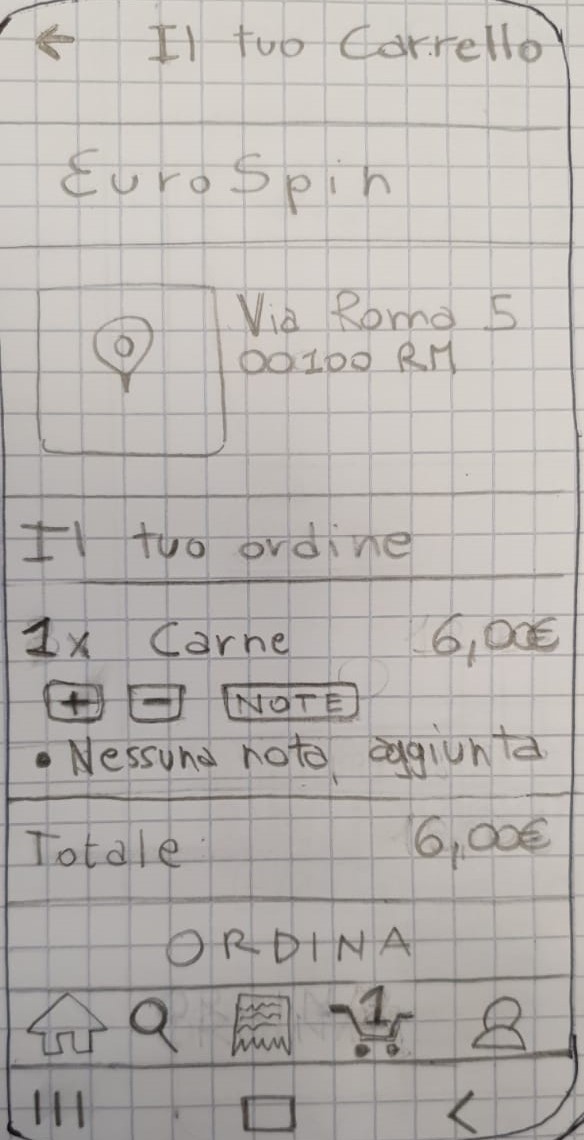 ← Il tuo Carrello
EuroSpin
Via Roma 5
00100 RM
Il tuo ordine
1x Carne 6,00€
+ - NOTE
• Nessuna nota aggiunta
Totale 6,00€
ORDINA
1